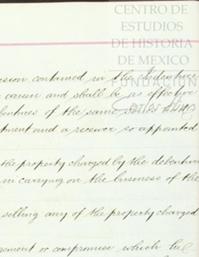 CENTRO DE
ESTUDIOS
DE HISTORIA
DE MEXICO
FUNDACIÓN
CARLOS SLIM
contained in the debenture
and shall be as effective
of the same
and a receiver so appointed
the property charged by the debenture
in carrying on the business of the
selling any of the property charged
or compromise which he